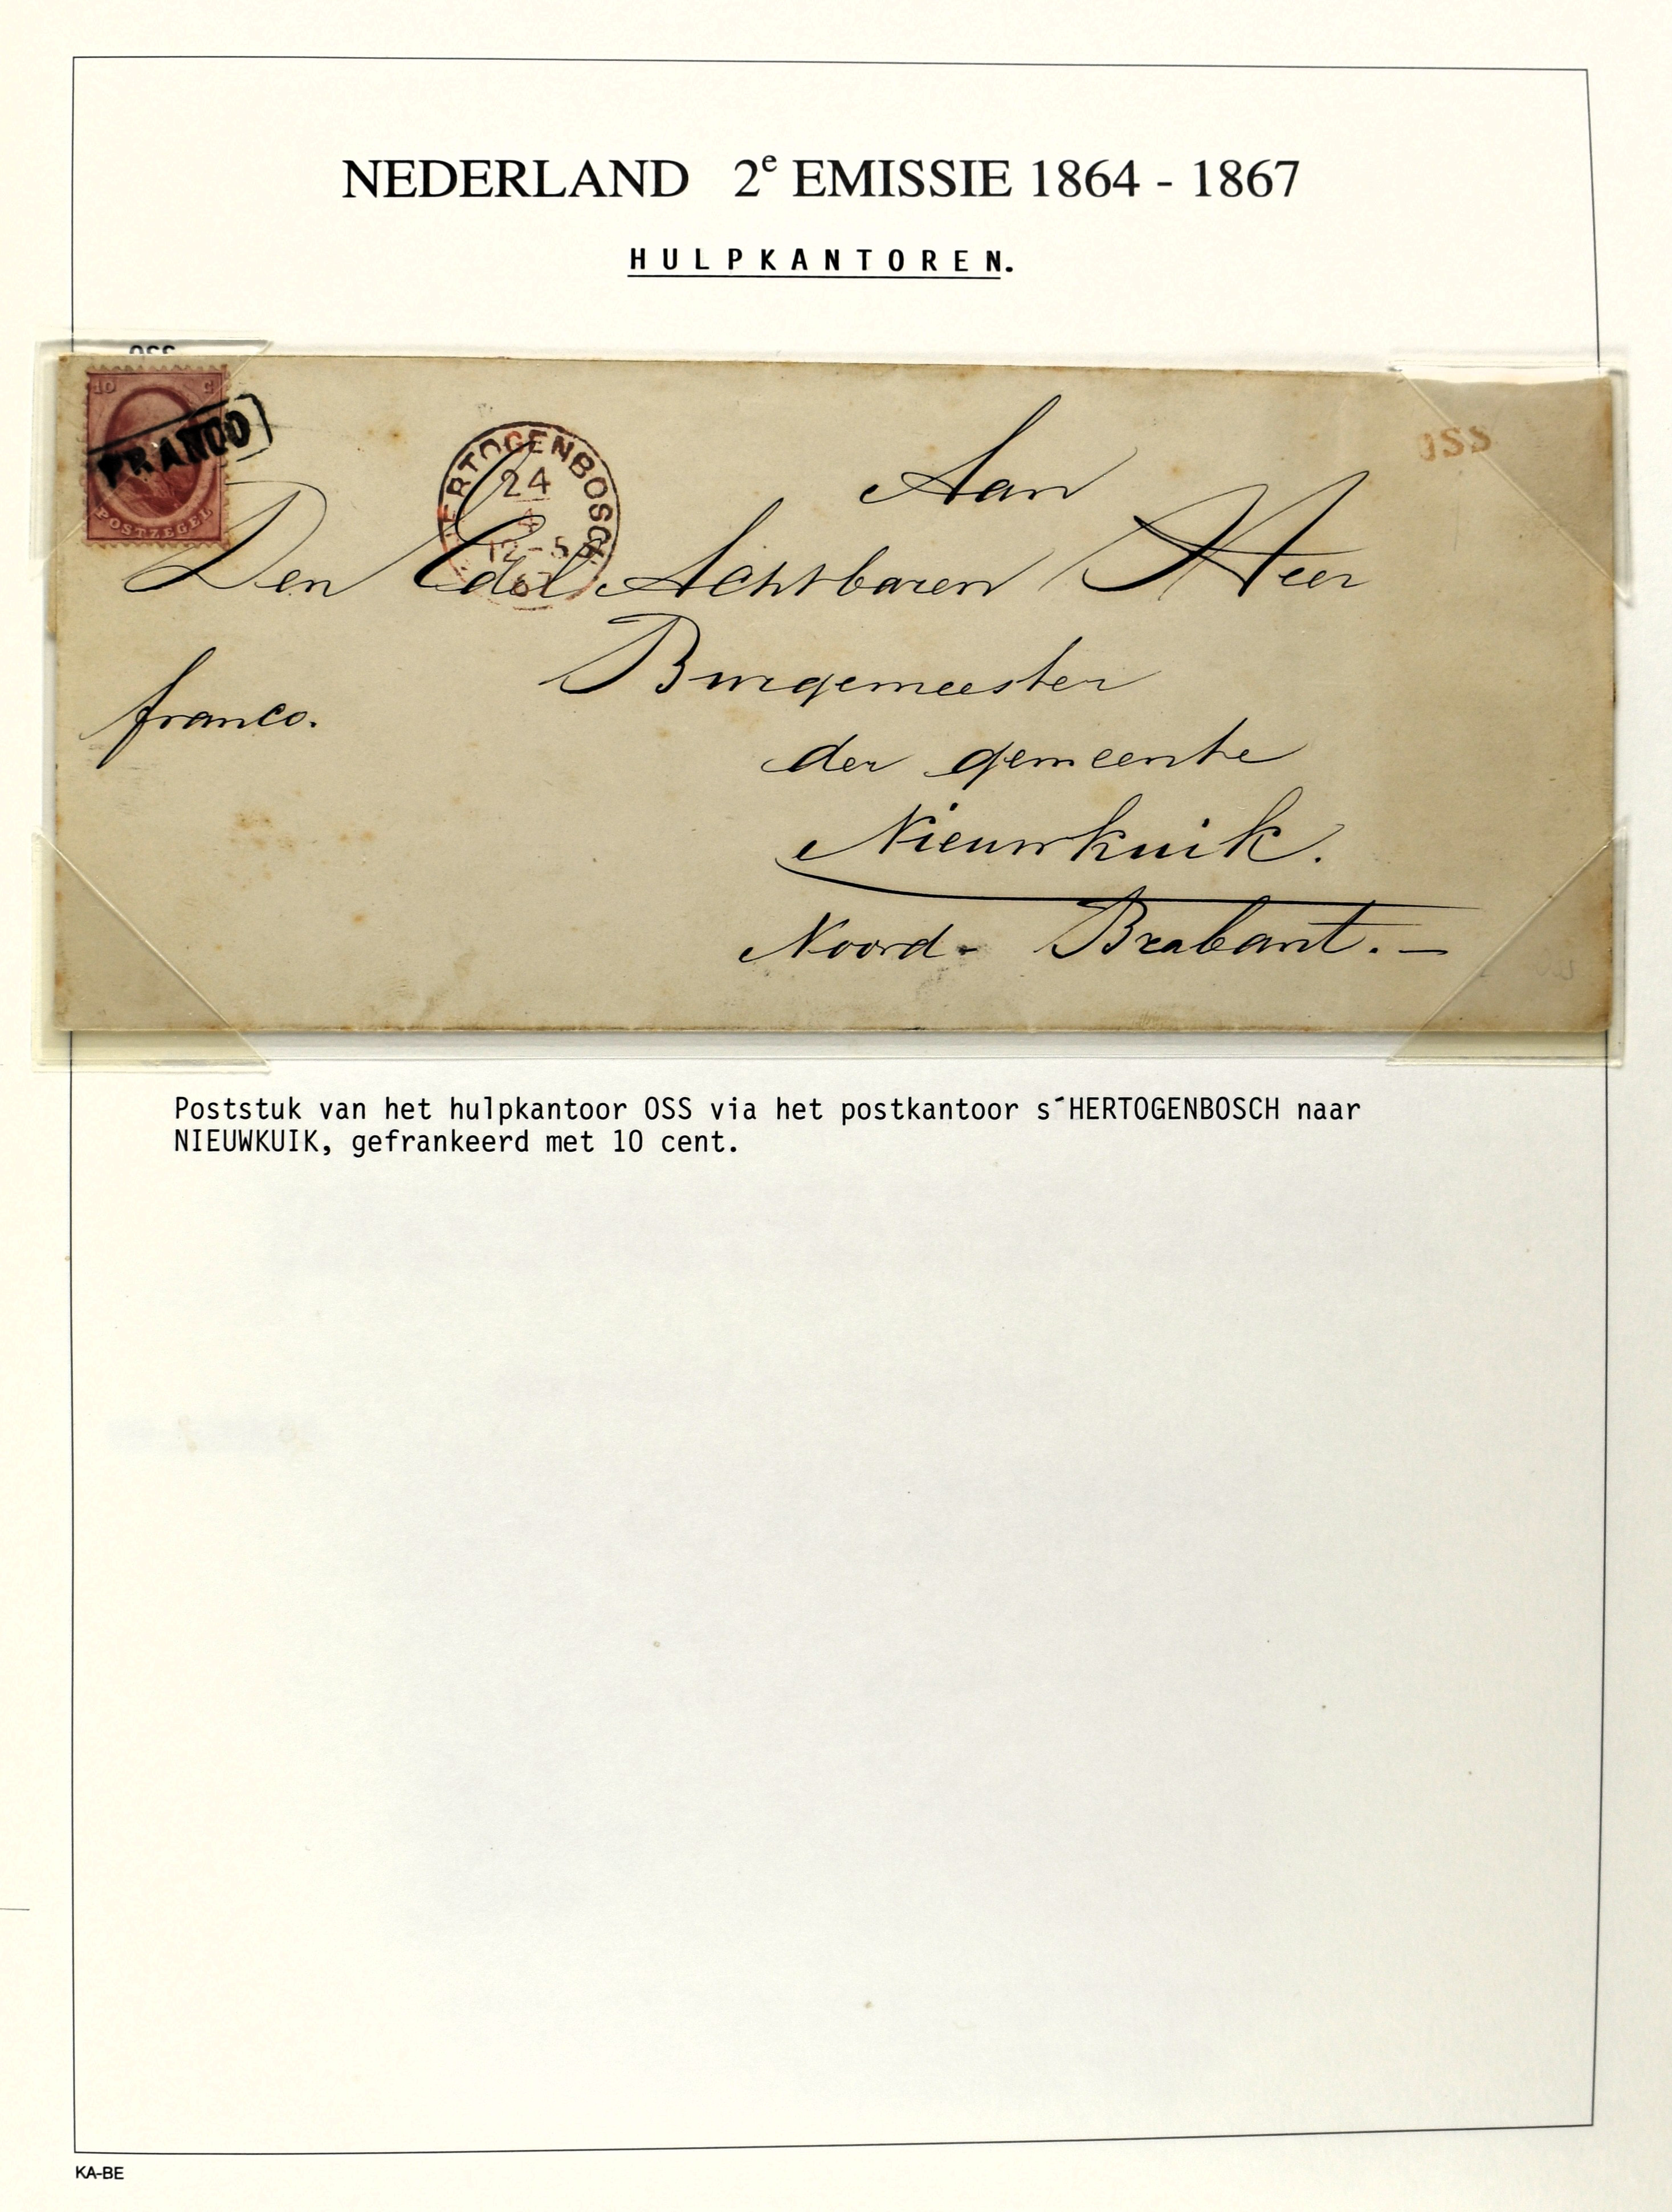 NEDERLAND 2e EMISSIE 1864 - 1867
HULPKANTOREN.
OSS
10 C
POSTZEGEL
FRANCO
ERTOGENBOSCH
24
4
12-5
OSS
Aan
Den Edel Achtbaren Heer
Burgemeester
franco.
der gemeente
Nieuwkuik.
Noord- Brabant. —
Poststuk van het hulpkantoor OSS via het postkantoor s´HERTOGENBOSCH naar
NIEUWKUIK, gefrankeerd met 10 cent.
KA-BE